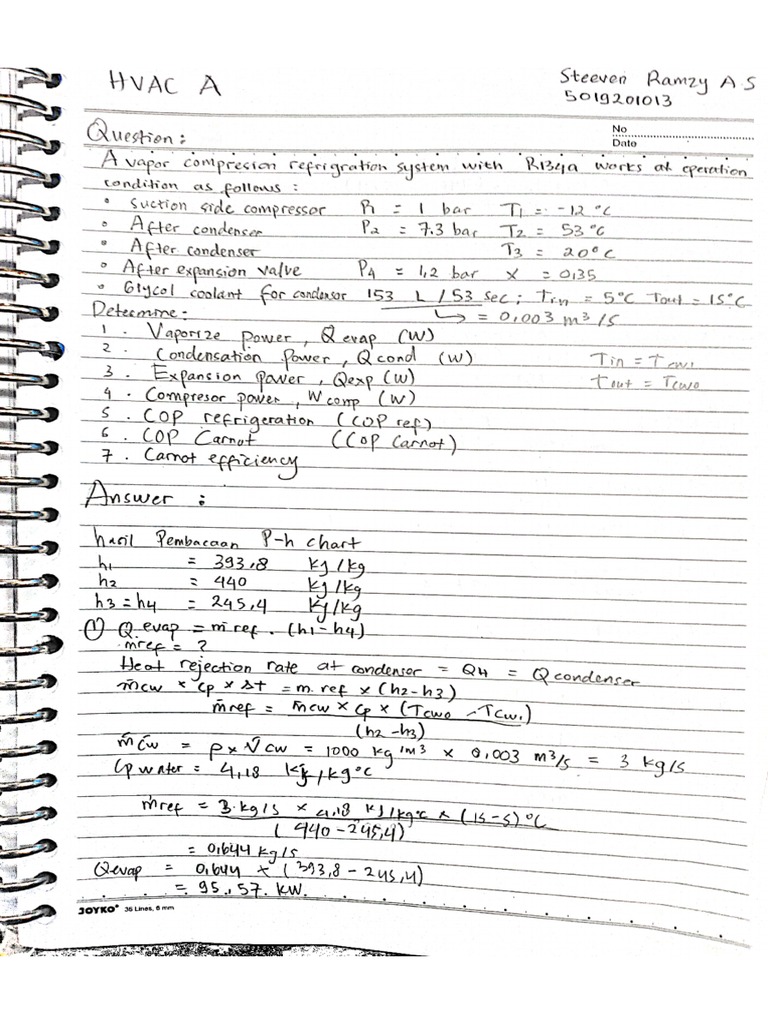 HVAC A
Steeven Ramzy A S
5019201013
No
Date
Question :
A vapor compresion refrigration system with R134a works at operation
condition as follows :
• Suction side compressor P1 = 1 bar T1 = -12 °C
• After condenser P2 = 7.3 bar T2 = 53 °C
• After condenser T3 = 20°C
• After expansion valve P4 = 1,2 bar X = 0,35
• Glycol coolant for condensor 153 L / 53 sec ; Tin = 5°C Tout = 15°C
Determine : ↳ = 0,003 m³/s
1. Vaporize power, Qevap (W)
2. Condensation power, Qcond (W) Tin = Tcw1
3. Expansion power, Qexp (W) Tout = Tcwo
4. Compresor power, Wcomp (W)
5. COP refrigeration (COP ref)
6. COP Carnot (COP Carnot)
7. Carnot efficiency
Answer :
hasil Pembacaan P-h chart
h1 = 393,8 kJ/kg
h2 = 440 kJ/kg
h3 = h4 = 245,4 kJ/kg
① Qevap = ṁref . (h1 - h4)
ṁref = ?
Heat rejection rate at condensor = Q4 = Qcondenser
ṁcw × Cp × Δt = m.ref × (h2-h3)
ṁref = ṁcw × Cp × (Tcwo - Tcw1)
(h2-h3)
ṁcw = ρ × V̇cw = 1000 kg/m³ × 0,003 m³/s = 3 kg/s
Cp water = 4,18 kJ/kg°C
ṁref = 3.kg/s × 4,18 kJ/kg°c × (15-5)°C
(440-245,4)
= 0,644 kg/s
Qevap = 0,644 × (393,8 - 245,4)
= 95,57. kW.
JOYKO® 36 Lines, 6 mm